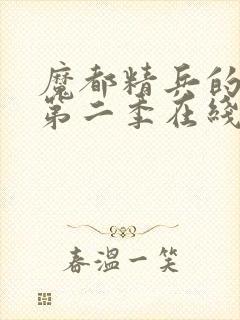 魔都精兵的
第二季在綫
春溫一笑